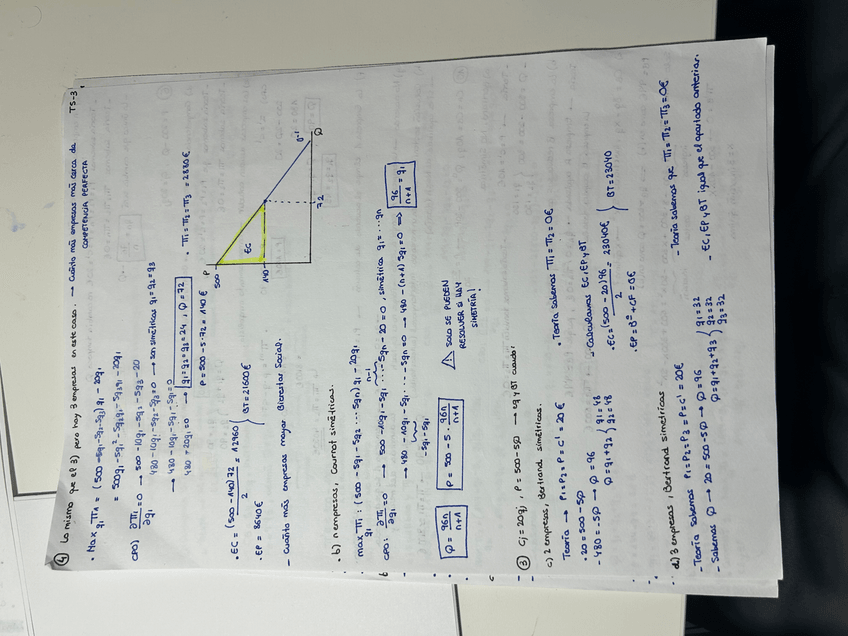 ④ Lo mismo que el 3) pero hay 3 empresas en este caso. → Cuánto más empresas más cerca de TS-3
COMPETENCIA PERFECTA
· Max π1 = (500 - 5q1 - 5q2 - 5q3) q1 - 20q1
q1
= 500q1 - 5q1² - 5q2q1 - 5q3q1 - 20q1
CPO) ∂π1/∂q1 = 0 → 500 - 10q1 - 5q2 - 5q3 - 20
480 - 10q1 - 5q2 - 5q3 = 0 → son simétricas q1 = q2 = q3
→ 480 - 10q1 - 5q1 - 5q1 = 0
480 - 20q1 = 0 → q1 = q2 = q3 = 24, Q = 72
P = 500 - 5·72 = 140€
· π1 = π2 = π3 = 2880€
· EC = (500 - 140)72/2 = 12960
· EP = 8640€
} BT = 21600€
P
500
EC
140
72
D⁻¹
Q
- Cuánto más empresas mayor Bienestar Social.
· b) n empresas, Cournot simétricas.
max πi : (500 - 5q1 - 5q2 ... 5qn) q1 - 20q1
q1
n-1
CPO: ∂πi/∂q1 = 0 → 500 - 10q1 - 5q1 ... - 5qn - 20 = 0, simétrica q1 = ... qn
→ 480 - 10q1 - 5q1 ... - 5qn = 0 → 480 - (n+1) 5q1 = 0 ⇒ 96/n+1 = q1
- 5q1 - 5q1
Q = 96n/n+1
P = 500 - 5 96n/n+1
⚠ SOLO SE PUEDEN
RESOLVER SI HAY
SIMETRÍA!
③ Cj = 20qj, P = 500 - 5Q → eq y BT cuando:
c) 2 empresas, Bertrand simétricas.
Teoría → P1 = P2 = P = C' = 20€
· Teoría sabemos π1 = π2 = 0€
· 20 = 500 - 5Q
- 480 = -5Q → Q = 96
Q = q1 + q2 } q1 = 48
q2 = 48
· Calculamos EC, EP y BT
· EC = (500 - 20)96/2 = 23040€
· EP = B⁰ + CF = 0€
} BT = 23040
d) 3 empresas, Bertrand simétricas
- Teoría sabemos P1 = P2 = P3 = P = C' = 20€
- Sabemos Q → 20 = 500 - 5Q → Q = 96
Q = q1 + q2 + q3 } q1 = 32
q2 = 32
q3 = 32
- Teoría sabemos que π1 = π2 = π3 = 0€
- EC, EP y BT igual que el apartado anterior.